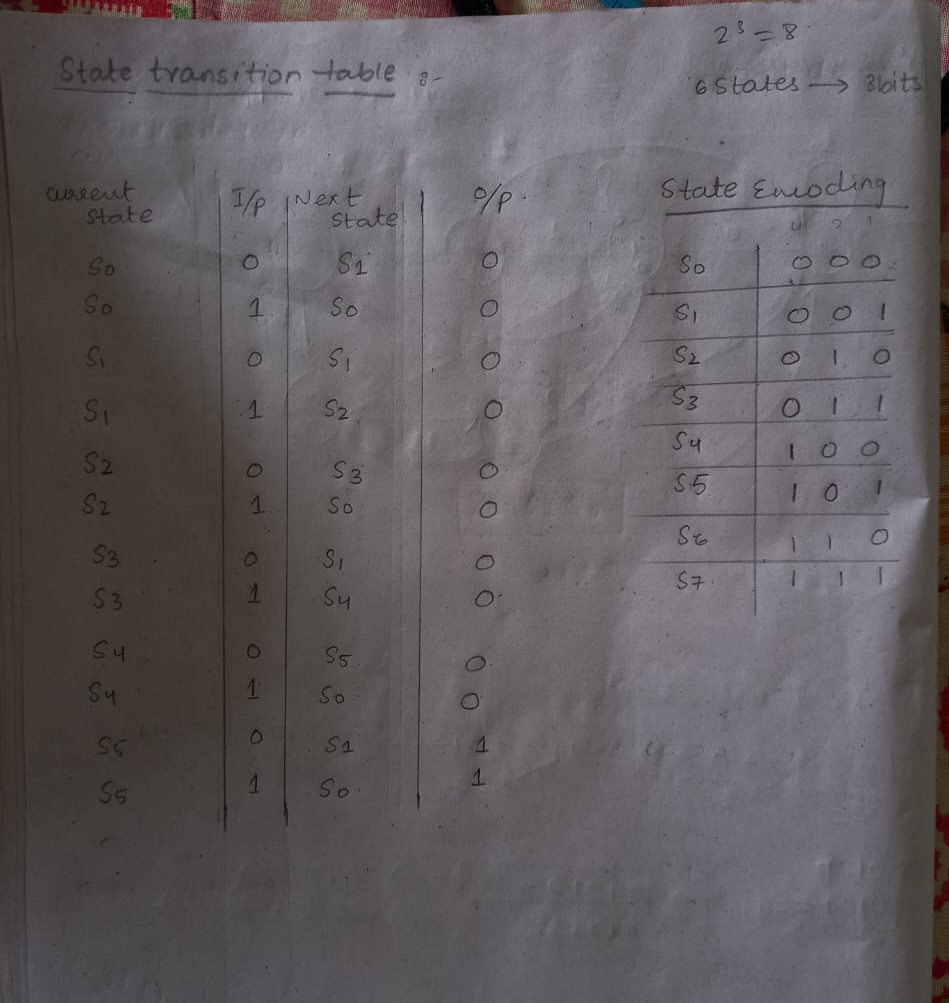 2³ = 8
State transition table :-
6 States → 3bits
current state I/p Next state o/p.
S0 0 S1 0
S0 1 S0 0
S1 0 S1 0
S1 1 S2 0
S2 0 S3 0
S2 1 S0 0
S3 0 S1 0
S3 1 S4 0
S4 0 S5 0
S4 1 S0 0
S5 0 S1 1
S5 1 S0 1
State Encoding
4 2 1
S0 0 0 0
S1 0 0 1
S2 0 1 0
S3 0 1 1
S4 1 0 0
S5 1 0 1
S6 1 1 0
S7 1 1 1